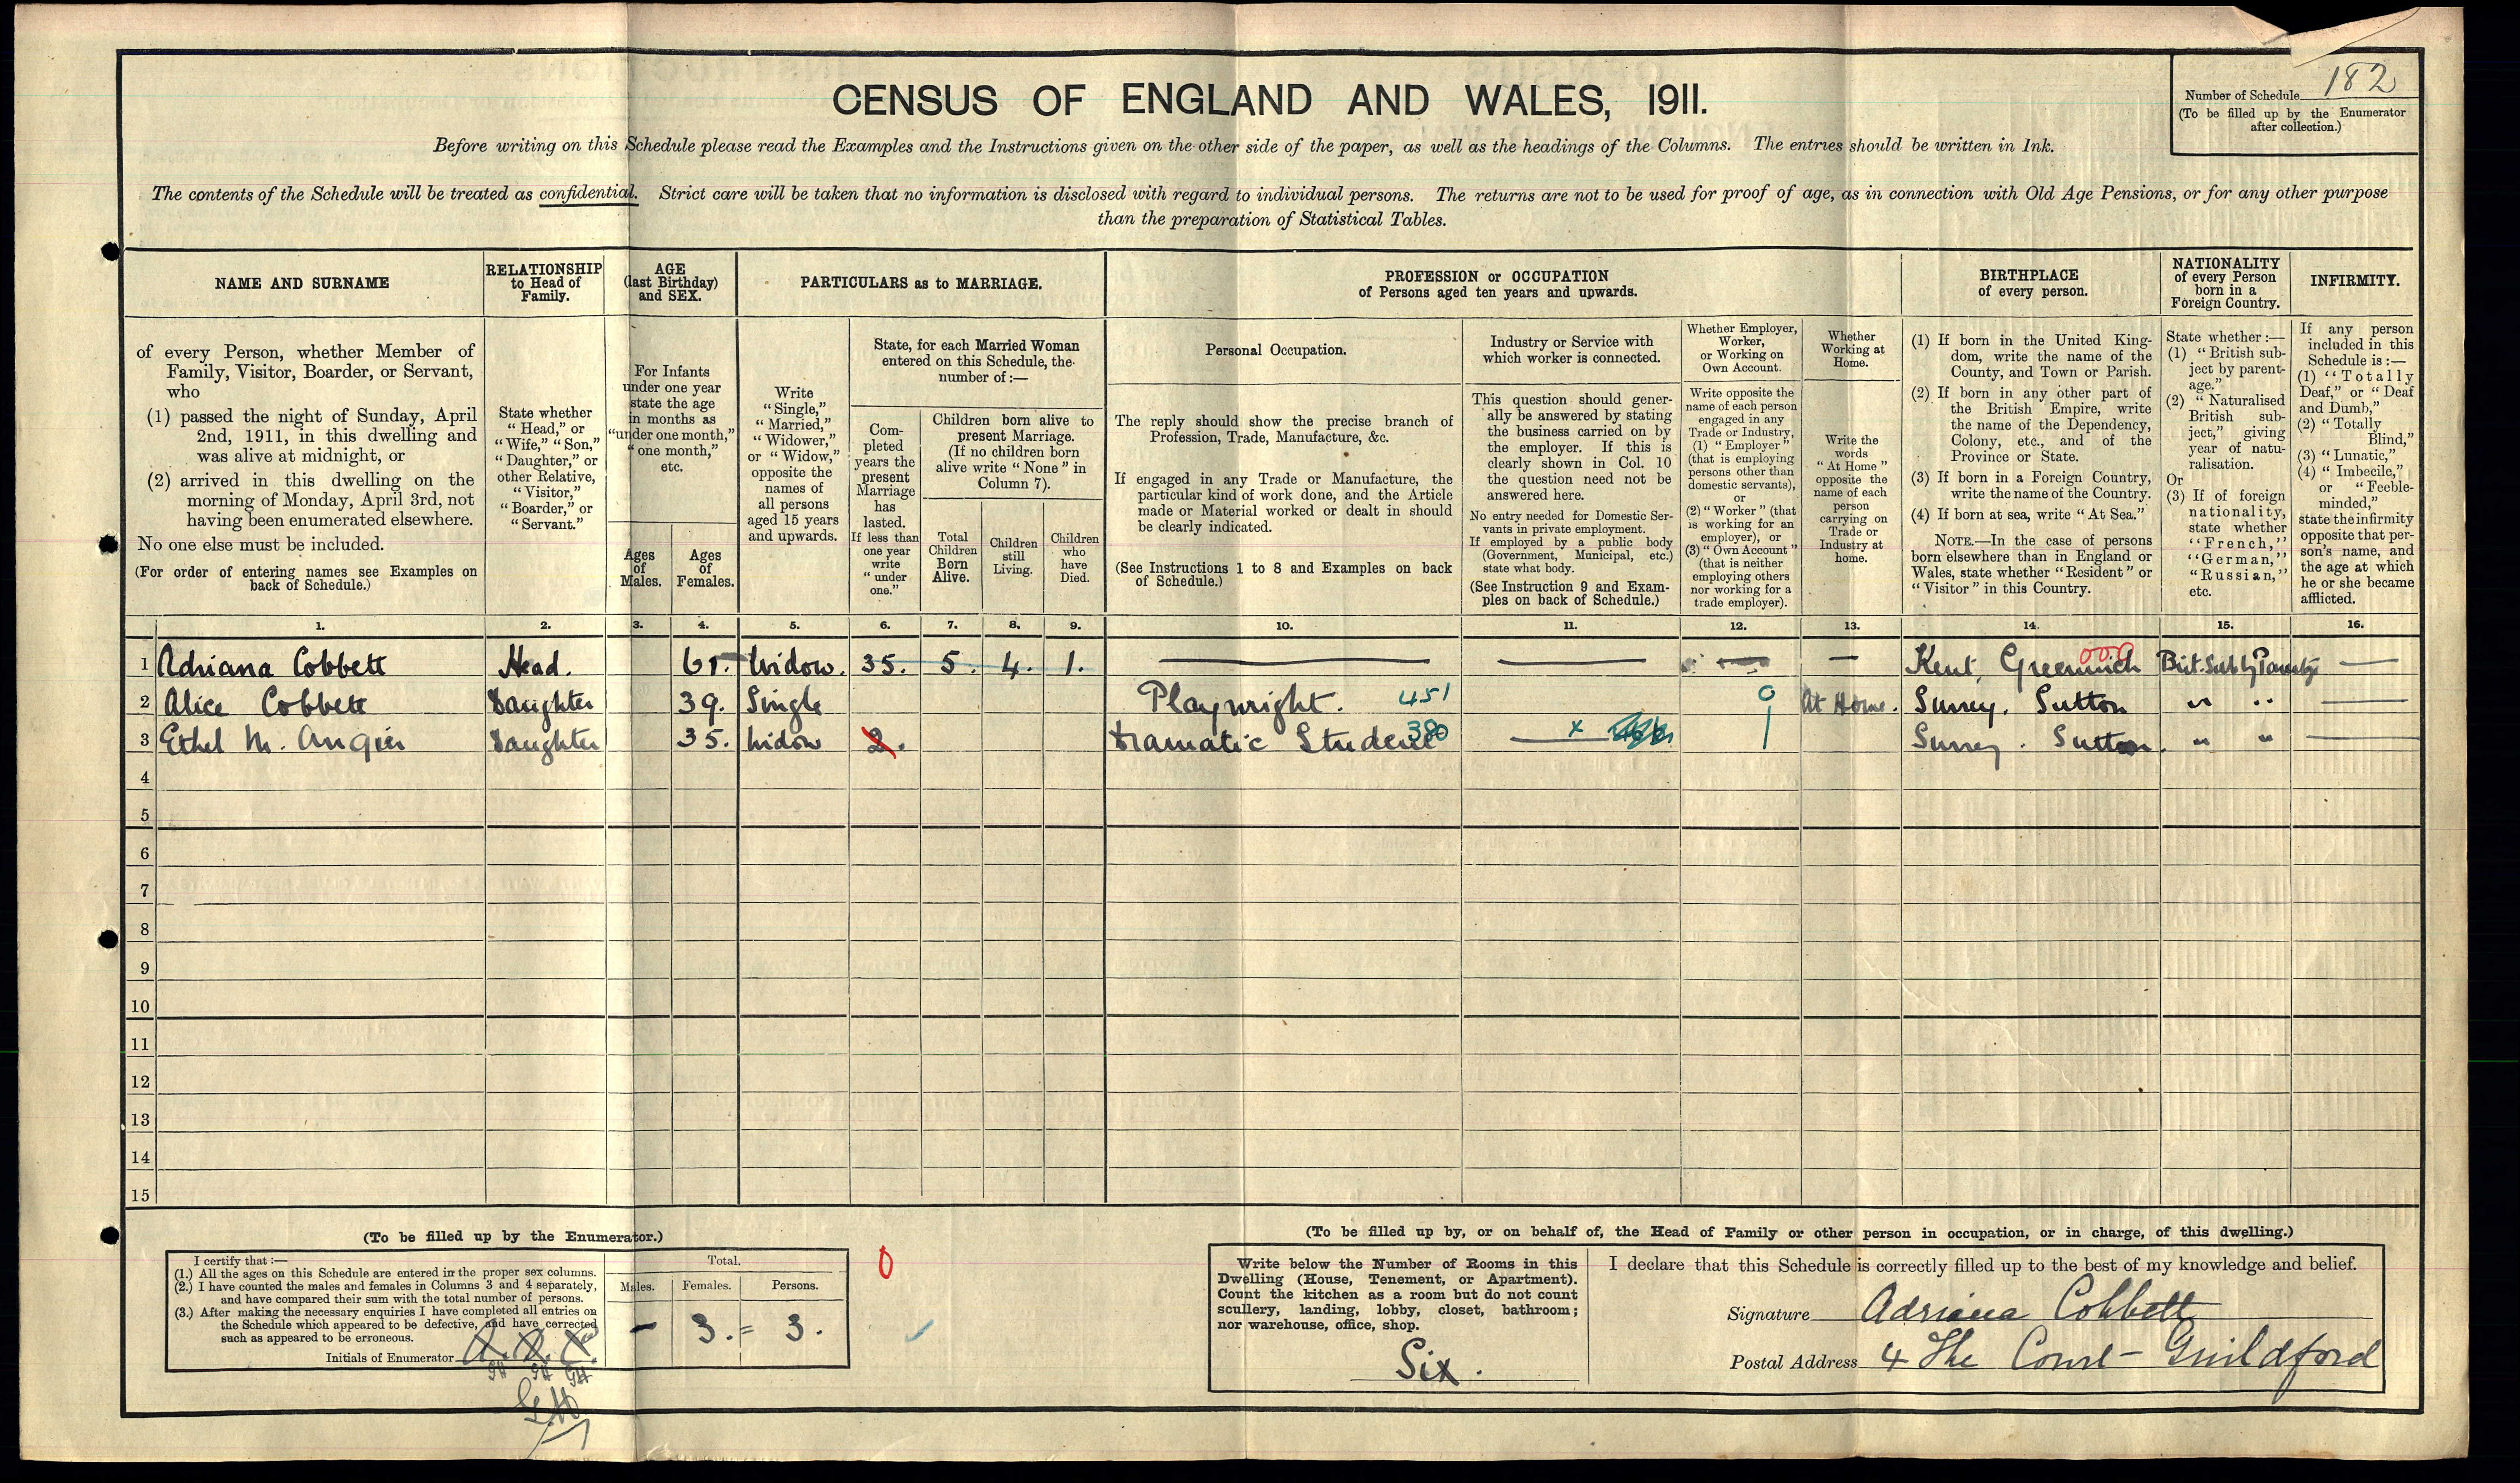 CENSUS OF ENGLAND AND WALES, 1911.
Number of Schedule 182
(To be filled up by the Enumerator
after collection.)
Before writing on this Schedule please read the Examples and the Instructions given on the other side of the paper, as well as the headings of the Columns. The entries should be written in Ink.
The contents of the Schedule will be treated as confidential. Strict care will be taken that no information is disclosed with regard to individual persons. The returns are not to be used for proof of age, as in connection with Old Age Pensions, or for any other purpose
than the preparation of Statistical Tables.
NAME AND SURNAME
of every Person, whether Member of
Family, Visitor, Boarder, or Servant,
who
(1) passed the night of Sunday, April
2nd, 1911, in this dwelling and
was alive at midnight, or
(2) arrived in this dwelling on the
morning of Monday, April 3rd, not
having been enumerated elsewhere.
No one else must be included.
(For order of entering names see Examples on
back of Schedule.)
RELATIONSHIP
to Head of
Family.
State whether
"Head," or
"Wife," "Son,"
"Daughter," or
other Relative,
"Visitor,"
"Boarder," or
"Servant."
AGE
(last Birthday)
and SEX.
For Infants
under one year
state the age
in months as
"under one month,"
"one month,"
etc.
Ages
of
Males.
Ages
of
Females.
PARTICULARS as to MARRIAGE.
Write
"Single,"
"Married,"
"Widower,"
or "Widow,"
opposite the
names of
all persons
aged 15 years
and upwards.
State, for each Married Woman
entered on this Schedule, the
number of:—
Com-
pleted
years the
present
Marriage
has
lasted.
If less than
one year
write
"under
one."
Children born alive to
present Marriage.
(If no children born
alive write "None" in
Column 7).
Total
Children
Born
Alive.
Children
still
Living.
Children
who
have
Died.
PROFESSION or OCCUPATION
of Persons aged ten years and upwards.
Personal Occupation.
The reply should show the precise branch of
Profession, Trade, Manufacture, &c.
If engaged in any Trade or Manufacture, the
particular kind of work done, and the Article
made or Material worked or dealt in should
be clearly indicated.
(See Instructions 1 to 8 and Examples on back
of Schedule.)
Industry or Service with
which worker is connected.
This question should gener-
ally be answered by stating
the business carried on by
the employer. If this is
clearly shown in Col. 10
the question need not be
answered here.
No entry needed for Domestic Ser-
vants in private employment.
If employed by a public body
(Government, Municipal, etc.)
state what body.
(See Instruction 9 and Exam-
ples on back of Schedule.)
Whether Employer,
Worker,
or Working on
Own Account.
Write opposite the
name of each person
engaged in any
Trade or Industry,
(1) "Employer"
(that is employing
persons other than
domestic servants),
or
(2) "Worker" (that
is working for an
employer), or
(3) "Own Account"
(that is neither
employing others
nor working for a
trade employer).
Whether
Working at
Home.
Write the
words
"At Home"
opposite the
name of each
person
carrying on
Trade or
Industry at
home.
BIRTHPLACE
of every person.
(1) If born in the United King-
dom, write the name of the
County, and Town or Parish.
(2) If born in any other part of
the British Empire, write
the name of the Dependency,
Colony, etc., and of the
Province or State.
(3) If born in a Foreign Country,
write the name of the Country.
(4) If born at sea, write "At Sea."
NOTE.—In the case of persons
born elsewhere than in England or
Wales, state whether "Resident" or
"Visitor" in this Country.
NATIONALITY
of every Person
born in a
Foreign Country.
State whether :—
(1) "British sub-
ject by parent-
age."
(2) "Naturalised
British sub-
ject," giving
year of natu-
ralisation.
Or
(3) If of foreign
nationality,
state whether
"French,"
"German,"
"Russian,"
etc.
INFIRMITY.
If any person
included in this
Schedule is:—
(1) "Totally
Deaf," or "Deaf
and Dumb,"
(2) "Totally
Blind,"
(3) "Lunatic,"
(4) "Imbecile,"
or "Feeble-
minded,"
state the infirmity
opposite that per-
son's name, and
the age at which
he or she became
afflicted.
1. 2. 3. 4. 5. 6. 7. 8. 9. 10. 11. 12. 13. 14. 15. 16.
1 Adriana Cobbett Head. 61. Widow. 35. 5. 4. 1. — — — — Kent, Greenwich 000 Brit. Sub by —
2 Alice Cobbett Daughter 39. Single Playwright. 451 0 At Home. Surrey. Sutton " " —
3 Ethel M. Angier Daughter 35. Widow 2. Dramatic Student 380 — x 1 Surrey. Sutton. " " —
4
5
6
7
8
9
10
11
12
13
14
15
(To be filled up by the Enumerator.)
I certify that:—
(1.) All the ages on this Schedule are entered in the proper sex columns.
(2.) I have counted the males and females in Columns 3 and 4 separately,
and have compared their sum with the total number of persons.
(3.) After making the necessary enquiries I have completed all entries on
the Schedule which appeared to be defective, and have corrected
such as appeared to be erroneous.
Initials of Enumerator
GH GH GH
GH
Total.
Males. Females. Persons.
— 3. = 3.
0
(To be filled up by, or on behalf of, the Head of Family or other person in occupation, or in charge, of this dwelling.)
Write below the Number of Rooms in this
Dwelling (House, Tenement, or Apartment).
Count the kitchen as a room but do not count
scullery, landing, lobby, closet, bathroom;
nor warehouse, office, shop.
Six.
I declare that this Schedule is correctly filled up to the best of my knowledge and belief.
Signature Adriana Cobbett
Postal Address 4 The Court - Guildford